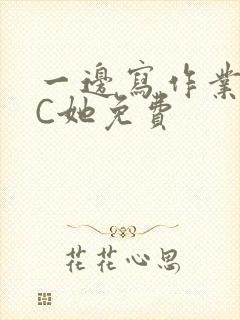 一邊寫作業
C她免費
花花心思